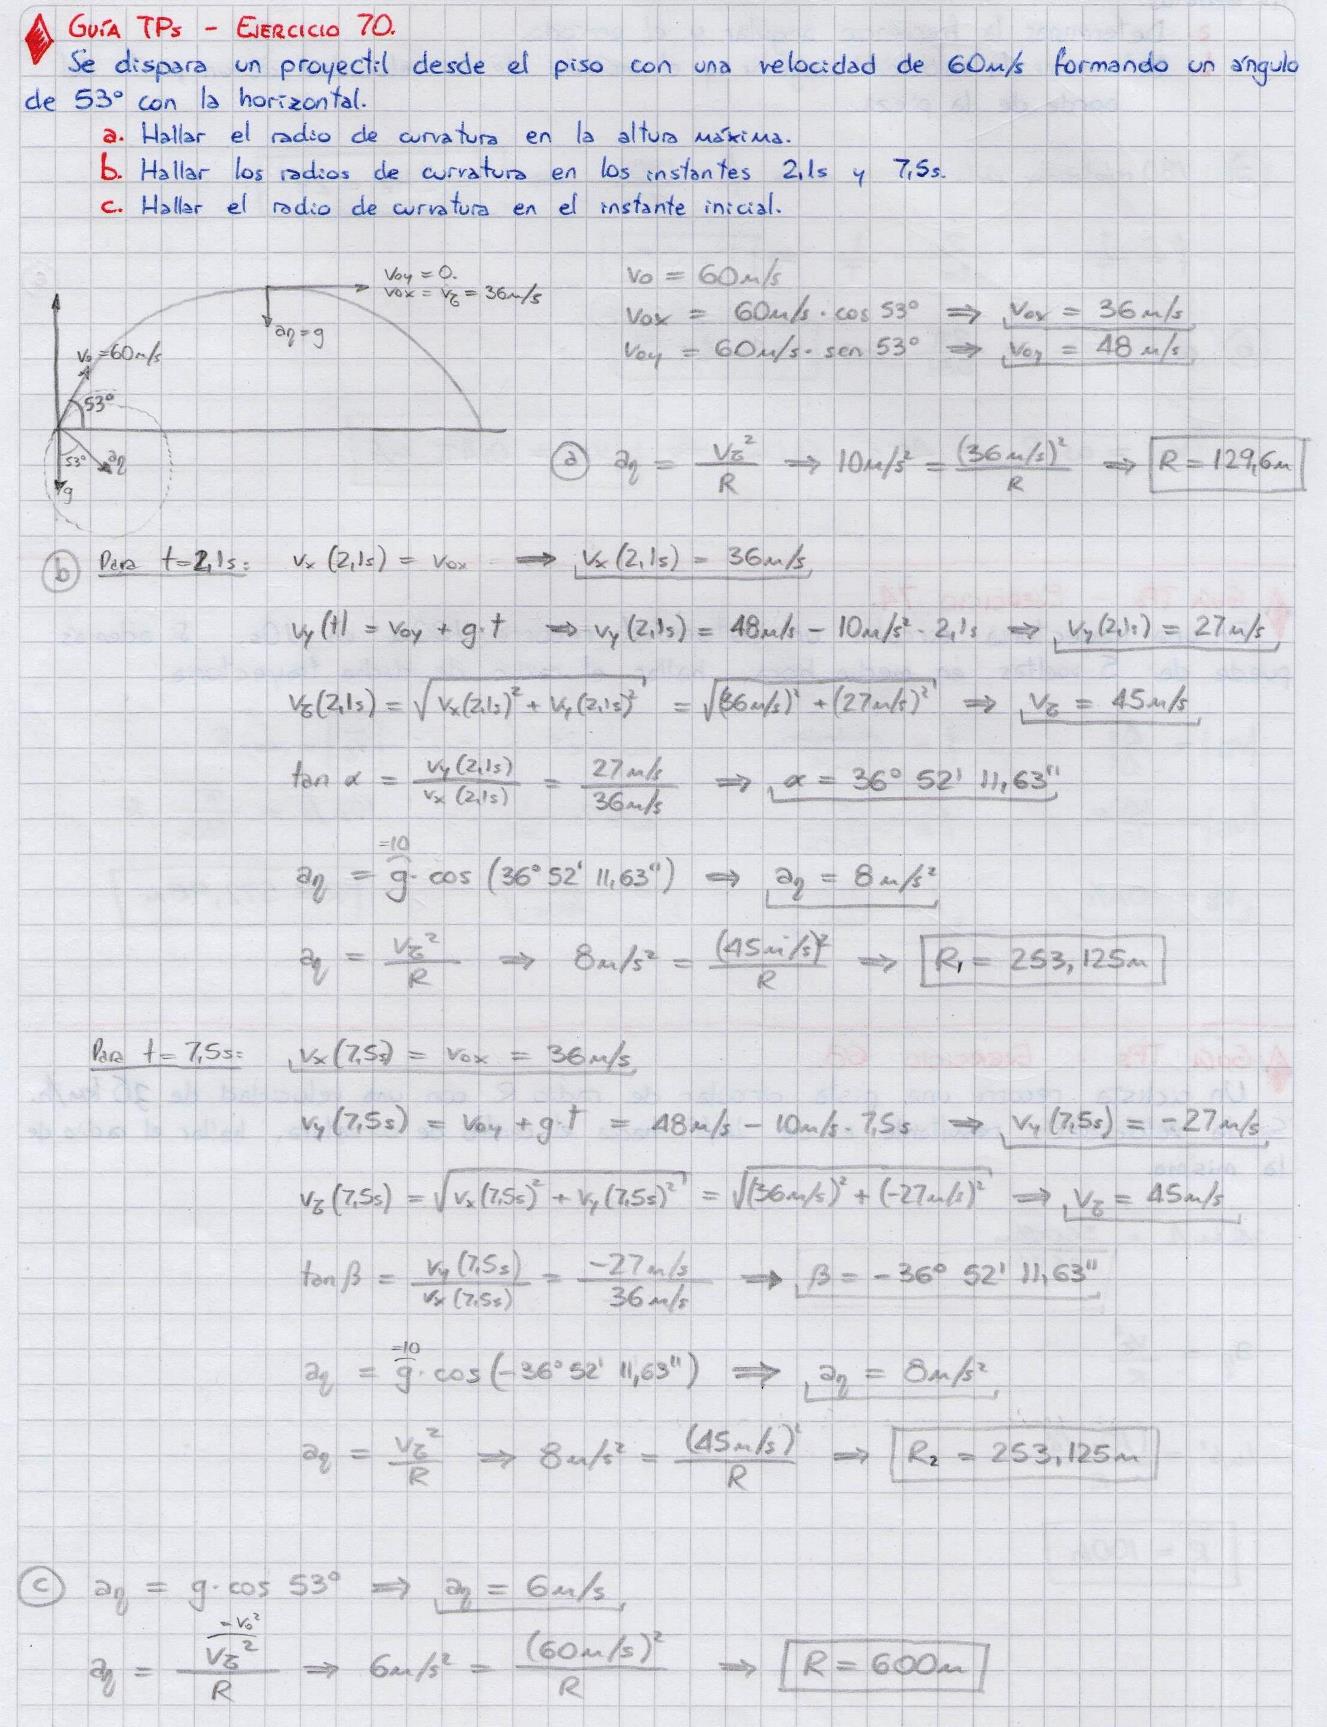 GUÍA TPs - EJERCICIO 70.
Se dispara un proyectil desde el piso con una velocidad de 60m/s formando un ángulo
de 53° con la horizontal.
a. Hallar el radio de curvatura en la altura máxima.
b. Hallar los radios de curvatura en los instantes 2,1s y 7,5s.
c. Hallar el radio de curvatura en el instante inicial.
voy = 0.
vox = vτ = 36m/s
aη = g
v₀ = 60m/s
53°
53°
aη
g
vo = 60m/s
vox = 60m/s · cos 53° ⇒ vox = 36m/s
voy = 60m/s · sen 53° ⇒ voy = 48m/s
a aη = vτ²/R ⇒ 10m/s² = (36m/s)²/R ⇒ R = 129,6m
b Para t=2,1s: vx (2,1s) = vox ⇒ vx (2,1s) = 36m/s
vy (t) = voy + g·t ⇒ vy (2,1s) = 48m/s - 10m/s² · 2,1s ⇒ vy (2,1s) = 27m/s
vτ (2,1s) = √(vx(2,1s)² + vy(2,1s)²) = √((36m/s)² + (27m/s)²) ⇒ vτ = 45m/s
tan α = vy (2,1s)/vx (2,1s) = 27m/s/36m/s ⇒ α = 36° 52' 11,63"
=10
aη = g · cos (36° 52' 11,63") ⇒ aη = 8m/s²
aη = vτ²/R ⇒ 8m/s² = (45m/s)²/R ⇒ R₁ = 253,125m
Para t = 7,5s: vx (7,5s) = vox = 36m/s
vy (7,5s) = voy + g·t = 48m/s - 10m/s · 7,5s ⇒ vy (7,5s) = -27m/s
vτ (7,5s) = √(vx (7,5s)² + vy (7,5s)²) = √((36m/s)² + (-27m/s)²) ⇒ vτ = 45m/s
tan β = vy (7,5s)/vx (7,5s) = -27m/s/36m/s ⇒ β = -36° 52' 11,63"
=10
aη = g · cos (-36° 52' 11,63") ⇒ aη = 8m/s²
aη = vτ²/R ⇒ 8m/s² = (45m/s)²/R ⇒ R₂ = 253,125m
c aη = g · cos 53° ⇒ aη = 6m/s
= v₀²
aη = vτ²/R ⇒ 6m/s² = (60m/s)²/R ⇒ R = 600m